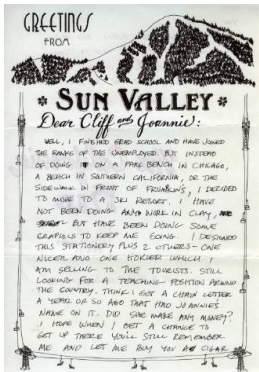 GREETINGS
FROM
SUN VALLEY
Dear Cliff and Joannie:
WELL, I FINISHED GRAD SCHOOL AND HAVE JOINED
THE RANKS OF THE UNEMPLOYED BUT INSTEAD
OF DOING IT ON A PARK BENCH IN CHICAGO
A BEACH IN SOUTHERN CALIFORNIA, OR THE
SIDEWALK IN FRONT OF FRUMKIN'S, I DECIDED
TO MOVE TO A SKI RESORT. I HAVE
NOT BEEN DOING ANY WORK IN CLAY,
BUT HAVE BEEN DOING SOME
GRAPHICS TO KEEP ME GOING. I DESIGNED
THIS STATIONERY PLUS 2 OTHERS - ONE
NICER AND ONE HOKIER WHICH I
AM SELLING TO THE TOURISTS. STILL
LOOKING FOR A TEACHING POSITION AROUND
THE COUNTRY. THINK I GOT A CHAIN LETTER
A YEAR OR SO AGO THAT HAD JOANNIE'S
NAME ON IT. DID SHE MAKE ANY MONEY?
I HOPE WHEN I GET A CHANCE TO
GET UP THERE YOU'LL STILL REMEMBER
ME AND LET ME BUY YOU A CIGAR